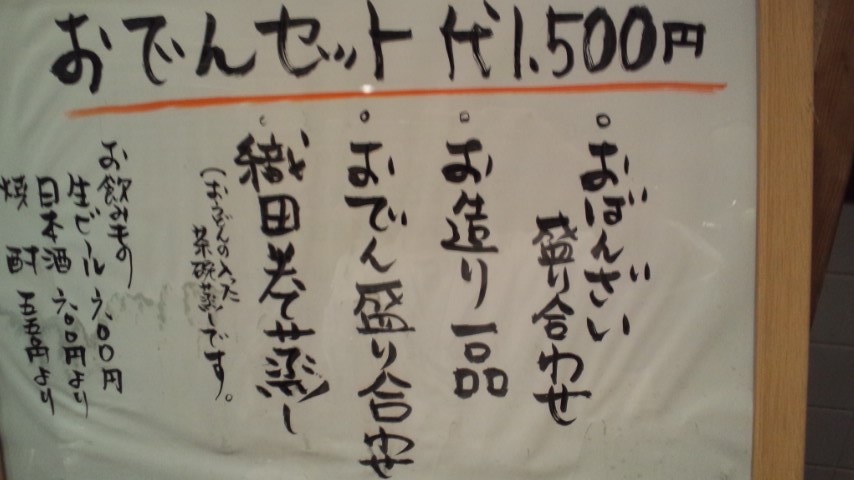 おでんセット 代1.500円
おばんざい
盛り合わせ
お造り一品
おでん盛り合わせ
織田巻て蒸し
(おうどんの入った
茶碗蒸しです。
お飲みもの
生ビール 六〇〇円
日本酒 六〇〇円より
焼酎 五五〇円より